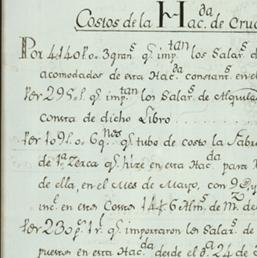 Costos de la H.da Hac.da de Cruc
Por 4140 p.o 3 gran.s q.e imp.tan los Salar.s d
acomodados de esta Hac.da constan.s en el
Per 295 l. q.e imp.tan los Salar.s de Alquila
contra de dicho Libro
Per 109 l. o 6 g.nos q.e tubo de costo la Fabri
de 1.a Zerca q.e hize en esta Hac.da para
de ella, en el Mes de Mayo, con 9 p.
inc.s en otros Costos 1446 Alm.s de M.z
Per 230 p.s 1 r.l q.e importaron los Salar.s de
puestos en esta Hac.da desde el d.a 24 de